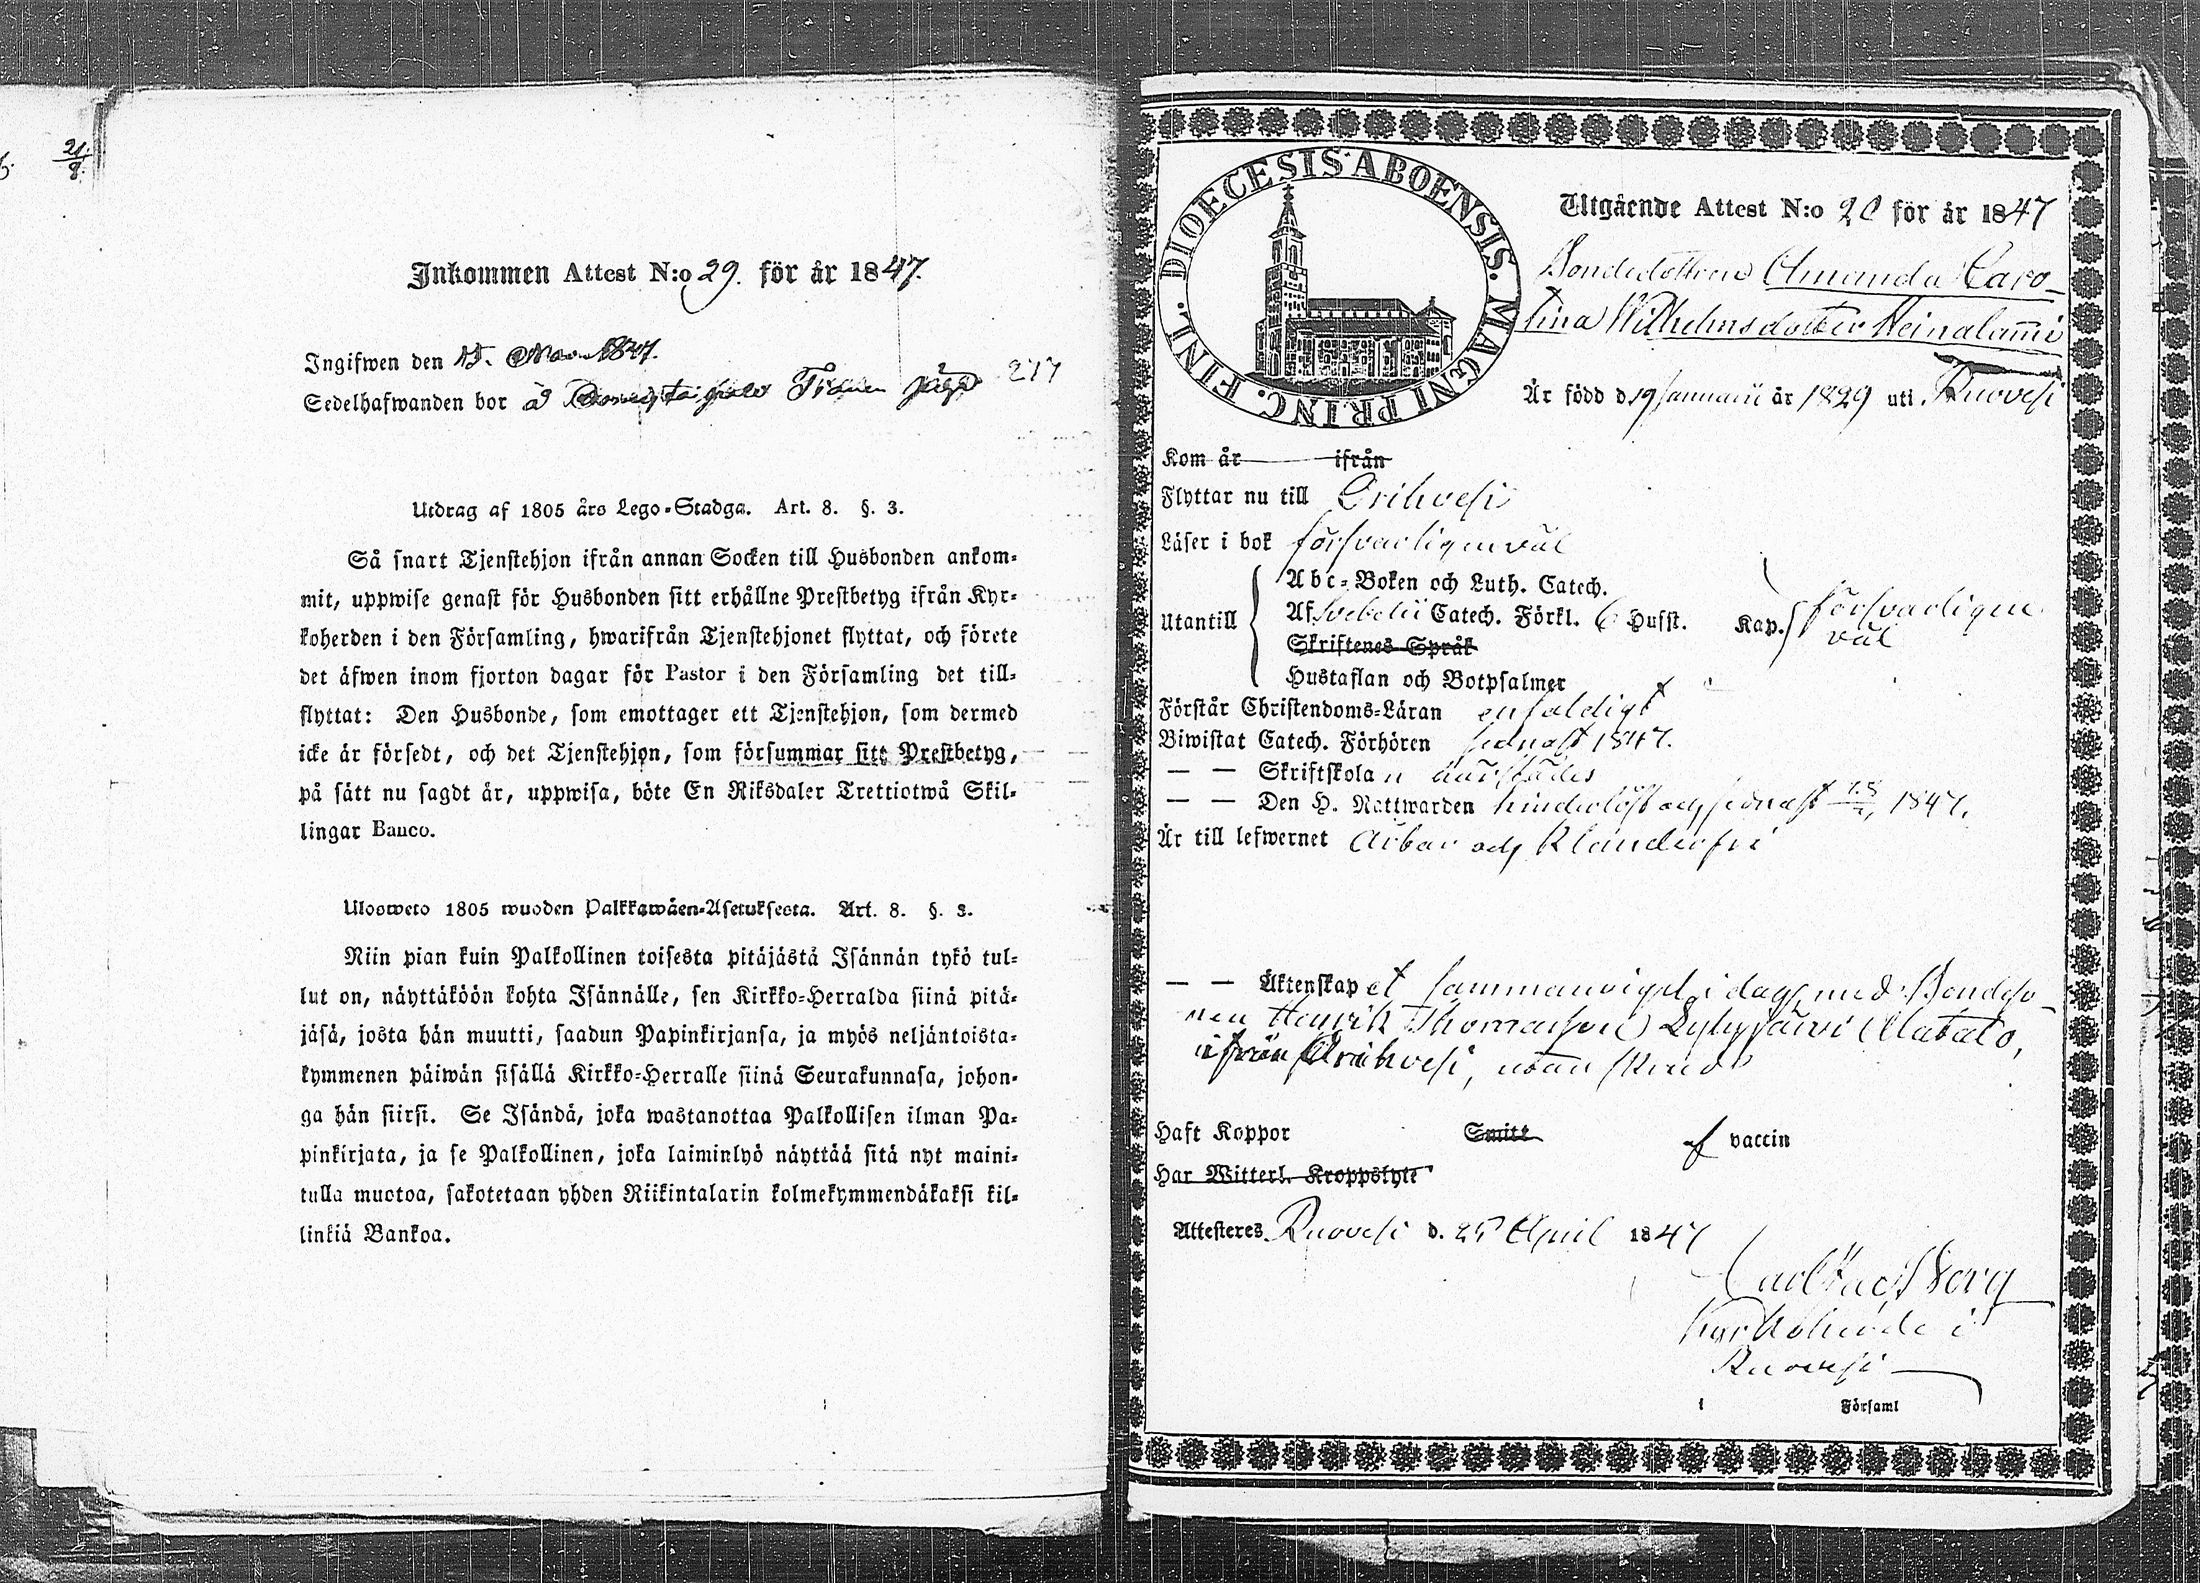 21.
9.
Inkommen Attest N:o 29. för år 1847.
Ingifwen den 15. 1847.
Sedelhafwanden bor å 217
Utdrag af 1805 års Lego-Stadga. Art. 8. §. 3.
Så snart Tjenstehjon ifrån annan Socken till Husbonden ankom-
mit, uppwise genast för Husbonden sitt erhållne Prestbetyg ifrån Kyr-
koherden i den Församling, hwarifrån Tjenstehjonet flyttat, och förete
det äfwen inom fjorton dagar för Pastor i den Församling det till-
flyttat: Den Husbonde, som emottager ett Tjenstehjon, som dermed
icke är försedt, och det Tjenstehjon, som försummar sitt Prestbetyg,
på sätt nu sagdt är, uppwisa, böte En Riksdaler Trettiotwå Skil-
lingar Banco.
Ulosweto 1805 wuoden Palkkawäen-Asetuksesta. Art. 8. §. 3.
Niin pian kuin Palkollinen toisesta pitäjästä Isännän tykö tul-
lut on, näyttäköön kohta Isännälle, sen Kirkko-Herralda siinä pitä-
jäsä, josta hän muutti, saadun Papinkirjansa, ja myös neljäntoista-
kymmenen päiwän sisällä Kirkko-Herralle siinä Seurakunnasa, johon-
ga hän siirsi. Se Isändä, joka wastanottaa Palkollisen ilman Pa-
pinkirjata, ja se Palkollinen, joka laiminlyö näyttää sitä nyt maini-
tulla muotoa, sakotetaan yhden Riikintalarin kolmekymmendäkaksi kil-
linkiä Bankoa.
DIOECESIS ABOENSIS. MAGNI PRINC. FINL.
Utgående Attest N:o 20 för år 1847
Bondedottren Amanda Caro-
lina Wilhelmsdotter Heinalam̄i
Är född d. 19 Januarii år 1829 uti Ruovesi
Kom år ifrån
Flyttar nu till Orihvesi
Läser i bok försvarligen väl
Abc-Boken och Luth. Catech.
Utantill Af Svebelii Catech. Förkl. 6 Hufst. Kap. försvarligen
väl
Skriftenes Språk
Hustaflan och Botpsalmer
Förstår Christendoms-Läran enfaldigt
Biwistat Catech. Förhören sednast 1847.
— — Skriftskolan härstädes
— — Den H. Nattwarden hinderlöst och sednast 1847.
Är till lefwernet ärbar och klanderfri
— — Äktenskapet sammanvigd i dag med Bondeso-
nen Henrik Thomasson Lylyjärvi Matato,
ifrån Orihvesi, utan
Haft Koppor Smitt af vaccin
Har Witterl. Kroppslyte
Attesteres Ruovesi d. 25 April 1847
Carl Berg
Kyrkoherde i
Ruovesi
i Församl